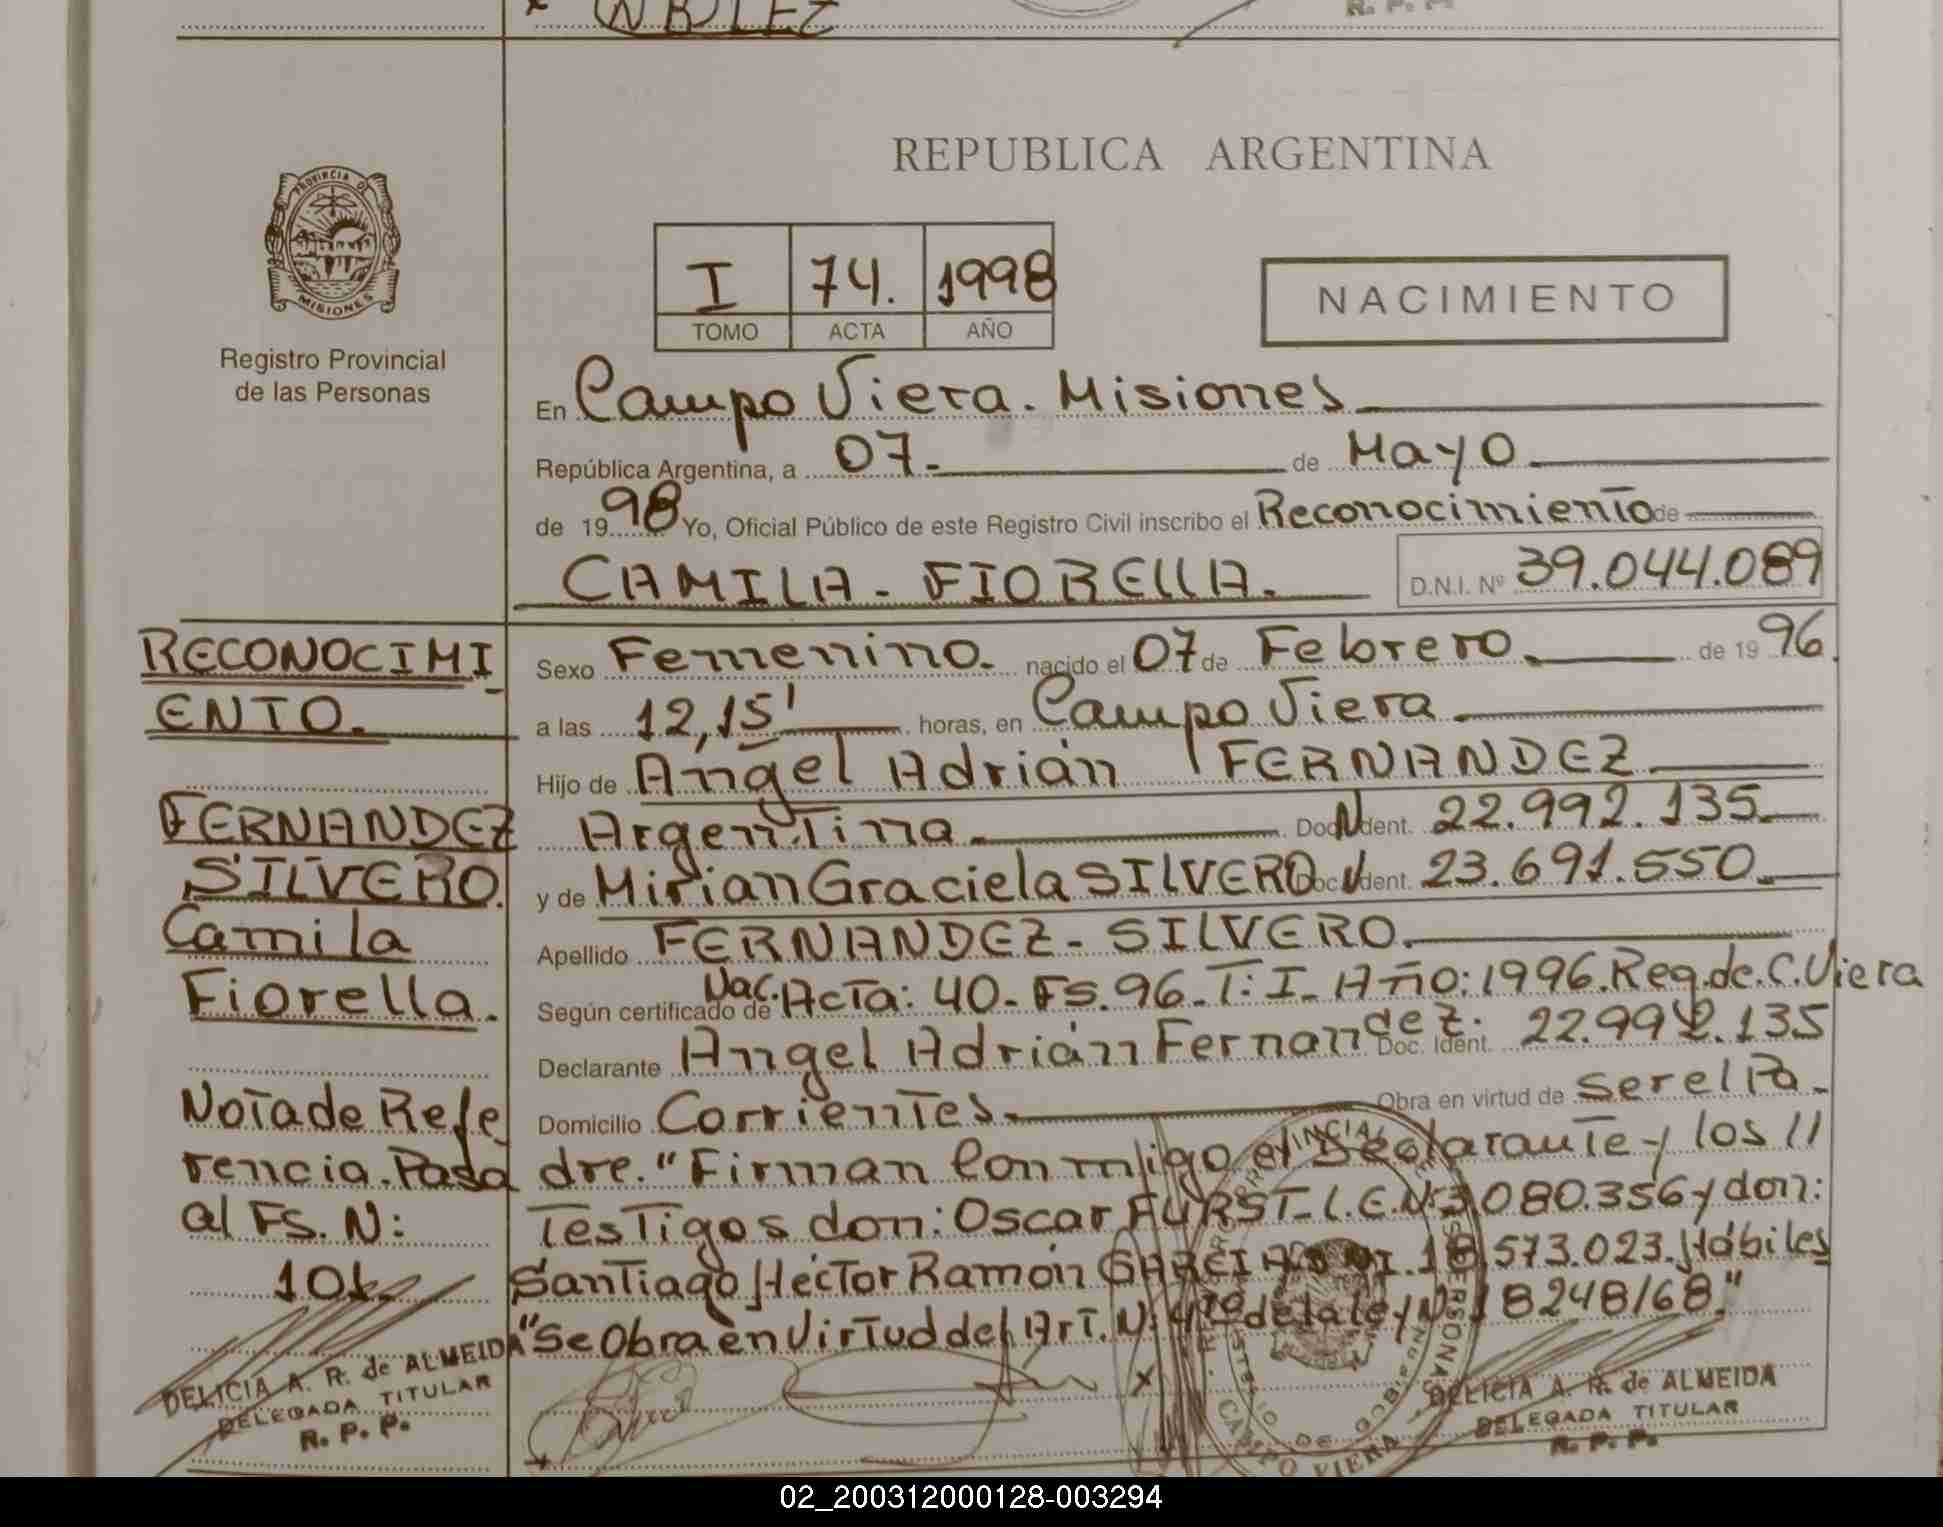 R. P. P.
REPUBLICA ARGENTINA
PROVINCIA DE
MISIONES
Registro Provincial
de las Personas
I 74. 1998
TOMO ACTA AÑO
NACIMIENTO
En Campo Viera. Misiones
República Argentina, a 07. de Mayo
de 1998 Yo, Oficial Público de este Registro Civil inscribo el Reconocimiento de
CAMILA - FIORELLA. D.N.I. Nº 39.044.089
RECONOCIMI
ENTO.
FERNANDEZ
SILVERO.
Camila
Fiorella.
Nota de Refe
rencia. Pasa
al Fs. N:
101.
DELICIA A. R. de ALMEIDA
DELEGADA TITULAR
R. P. P.
Sexo Femenino. nacido el 07 de Febrero. de 1996.
a las 12,15' horas, en Campo Viera.
Hijo de Angel Adrián FERNANDEZ
Argentina. Doc. Ident. N 22.992.135.
y de Mirian Graciela SILVERO Doc. Ident. N 23.691.550.
Apellido FERNANDEZ - SILVERO.
Según certificado de Nac. Acta: 40 - Fs. 96 - T: I - Año: 1996. Reg. de. C. Viera
Declarante Angel Adrián Fernandez. Doc. Ident. 22.992.135
Domicilio Corrientes. Obra en virtud de ser el Pa-
dre. "Firman Conmigo el Declarante y los //
Testigos don: Oscar FURST - L.E.N: 3.080.356 y don:
Santiago Héctor Ramón GARCIA DNI. 18.573.023. Hábiles
"Se Obra en Virtud del Art. N: 4to de la ley N: 18248/68."
CAMPO VIERA
DELICIA A. R. de ALMEIDA
DELEGADA TITULAR
R. P. P.
02_200312000128-003294